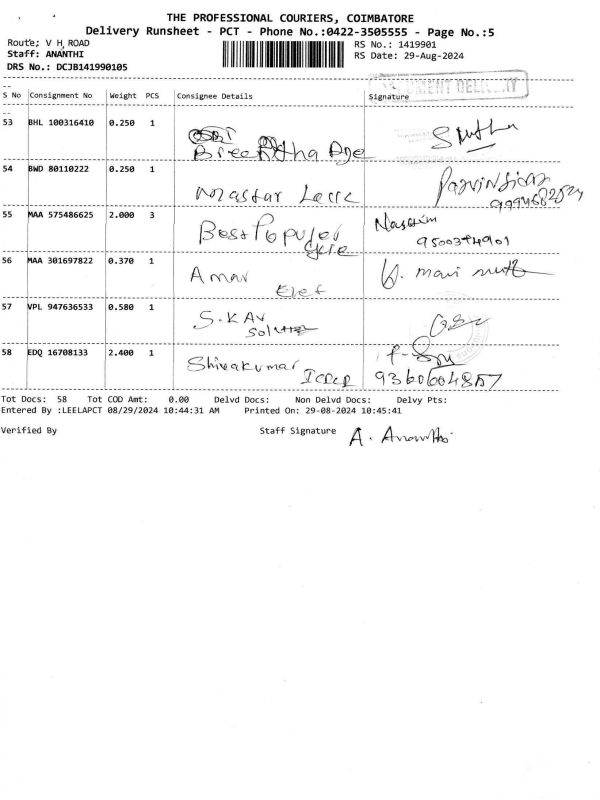 THE PROFESSIONAL COURIERS, COIMBATORE
Delivery Runsheet - PCT - Phone No.:0422-3505555 - Page No.:5
Route: V H ROAD
RS No.: 1419901
Staff: ANANTHI
RS Date: 29-Aug-2024
DRS No.: DCJB141990105
S No Consignment No Weight PCS Consignee Details Signature
53 BHL 100316410 0.250 1
54 BWD 80110222 0.250 1
Mastar
55 MAA 575486625 2.000 3 Nassim
Best Popular
56 MAA 301697822 0.370 1
Amar
Elec
57 VPL 947636533 0.580 1
S.KAV
Solution
58 EDQ 16708133 2.400 1
Shivakumar
Tot Docs: 58 Tot COD Amt: 0.00 Delvd Docs: Non Delvd Docs: Delvy Pts:
Entered By :LEELAPCT 08/29/2024 10:44:31 AM Printed On: 29-08-2024 10:45:41
Verified By Staff Signature A. Ananthi